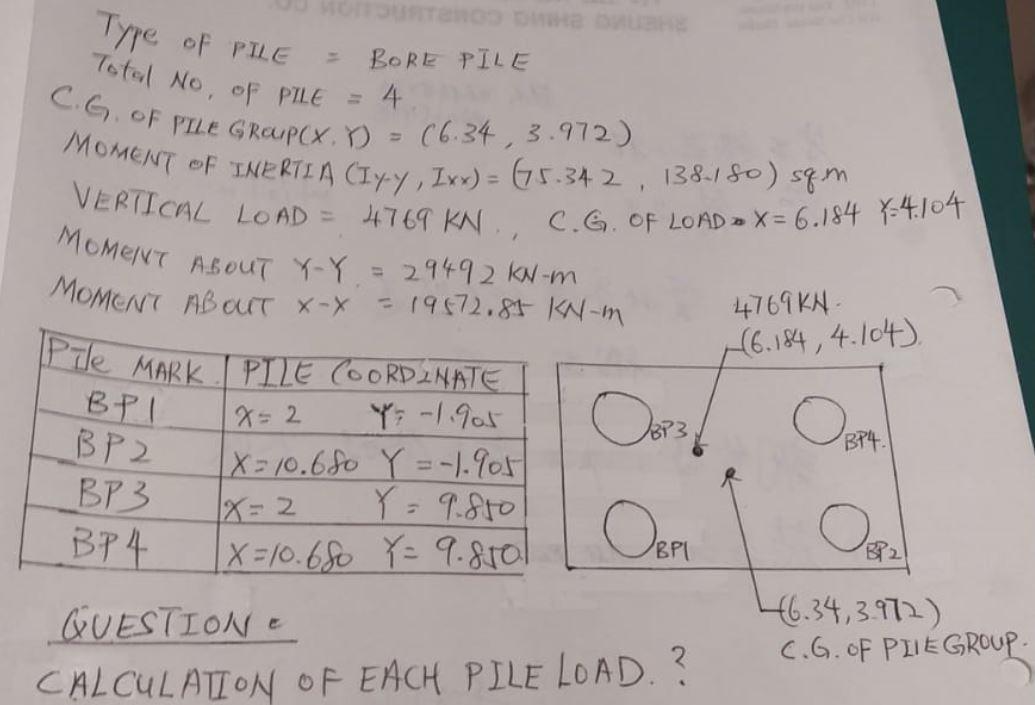 Type of PILE = BORE PILE
Total No. of PILE = 4
C.G. OF PILE GROUP(X.Y) = (6.34, 3.972)
MOMENT OF INERTIA (Iyy, Ixx) = (75.342, 138.180) sq.m
VERTICAL LOAD = 4769 KN., C.G. OF LOAD = X=6.184 Y=4.104
MOMENT ABOUT Y-Y = 29492 KN-m
MOMENT ABOUT X-X = 19572.85 KN-m
4769KN.
(6.184, 4.104).
Pile MARK. PILE COORDINATE
BP1 X=2 Y=-1.905
BP2 X=10.680 Y=-1.905
BP3 X=2 Y=9.850
BP4 X=10.680 Y=9.850
BP3
BP4.
BP1
BP2
(6.34, 3.972)
C.G. OF PILE GROUP.
QUESTION =
CALCULATION OF EACH PILE LOAD.?